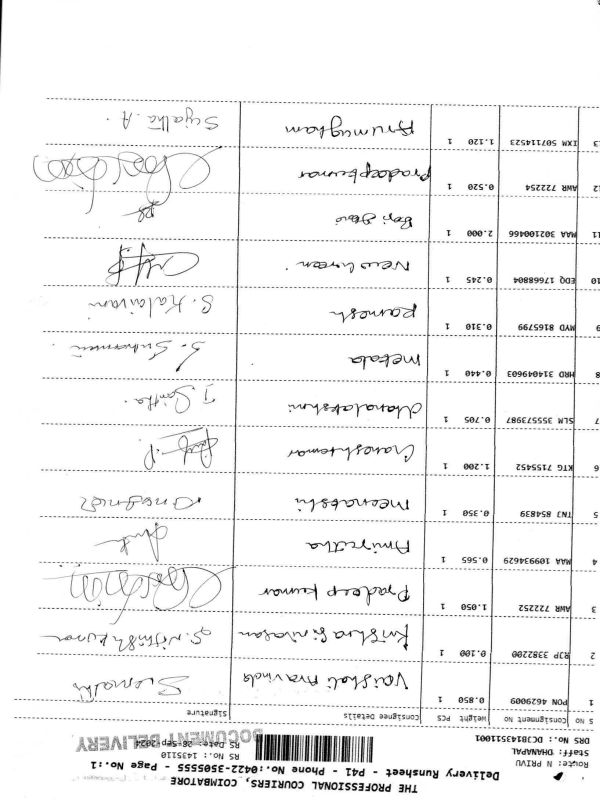 THE PROFESSIONAL COURIERS, COIMBATORE
Delivery Runsheet - P41 - Phone No.:0422-3505555 - Page No.:1
Route: N PRIVU
Staff: DHANAPAL RS No.: 1435110
DRS No.: DC7814351100 1 RS Date: 28-Sep-2024
DOCUMENT DELIVERY
S NO Consignment No Weight PCS Consignee Details Signature
1 PON 4629009 0.850 1 Vaishali Aravinds
2 RJP 3382200 0.100 1 Krithra Sinivasan S. Nithish kumar
3 AWR 722252 1.050 1 Pradeep kumar
4 MAA 109934629 0.565 1 Amirtha
5 TNJ 854839 0.350 1 Meenakshi
6 KTG 7155452 1.200 1 Ganeshkumar
7 SLM 355573987 0.705 1 Dhanalakshmi J. Santha.
8 HRD 31049603 0.440 1 Mekala
9 MYD 8165799 0.310 1 Ramesh S. Kalaivani
10 EDQ 17668804 0.245 1
11 MAA 302100466 2.000 1
12 AWR 722254 0.520 1 Pradeepkumar
13 IXM 507114523 1.120 1 Arumugham Sujatha. A.